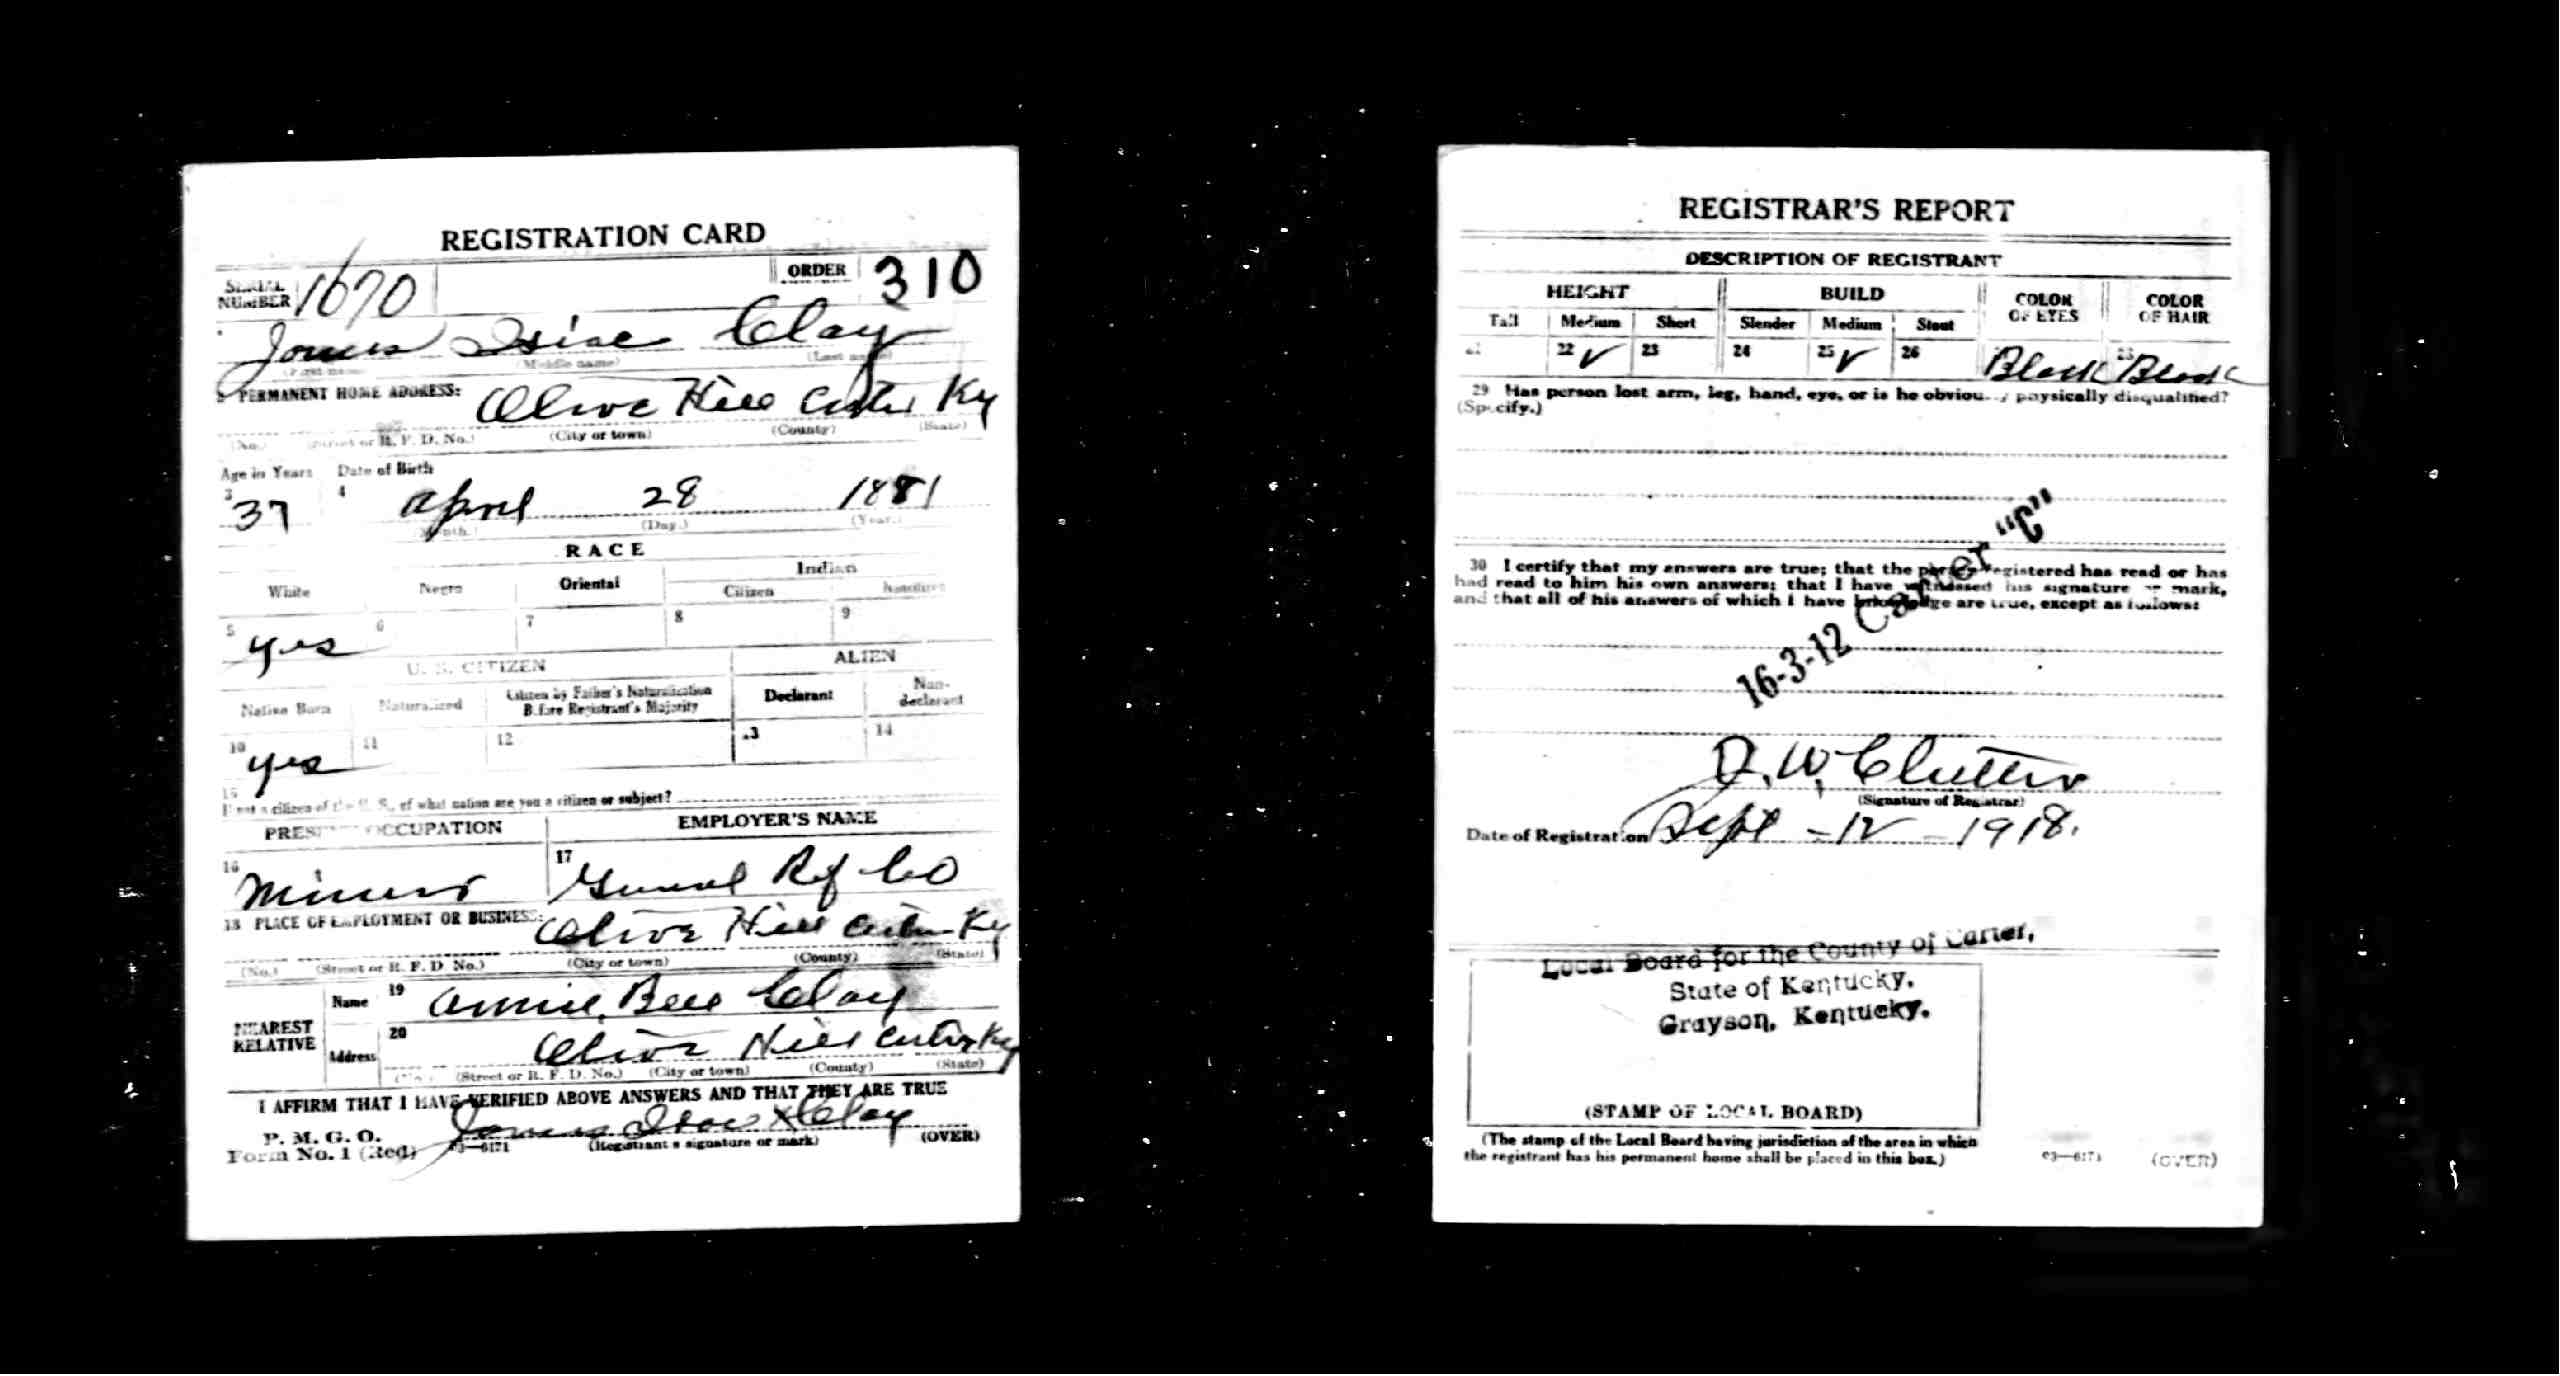 REGISTRATION CARD
SERIAL NUMBER 1670 ORDER 310
James Isiac Clay
(First name) (Middle name) (Last name)
PERMANENT HOME ADDRESS: Olive Hill Carter Ky
(No.) (Street or R. F. D. No.) (City or town) (County) (State)
Age in Years Date of Birth
3 37 4 April 28 1881
(Month.) (Day.) (Year.)
RACE
White Negro Oriental Indian
Citizen Noncitizen
5 yes 6 7 8 9
U. S. CITIZEN ALIEN
Native Born Naturalized Citizen by Father's Naturalization Before Registrant's Majority Declarant Non-declarant
10 yes 11 12 13 14
15 If not a citizen of the U. S., of what nation are you a citizen or subject?
PRESENT OCCUPATION EMPLOYER'S NAME
16 Miner 17 General Rf Co
18 PLACE OF EMPLOYMENT OR BUSINESS: Olive Hill Carter Ky
(No.) (Street or R. F. D. No.) (City or town) (County) (State)
NEAREST RELATIVE
Name 19 Annie Bell Clay
Address 20 Olive Hill Carter Ky
(No.) (Street or R. F. D. No.) (City or town) (County) (State)
I AFFIRM THAT I HAVE VERIFIED ABOVE ANSWERS AND THAT THEY ARE TRUE
P. M. G. O.
Form No. 1 (Red) 03—6171 James Isac X Clay
(Registrant's signature or mark) (OVER)
REGISTRAR'S REPORT
DESCRIPTION OF REGISTRANT
HEIGHT BUILD COLOR OF EYES COLOR OF HAIR
Tall Medium Short Slender Medium Stout
21 22 ✓ 23 24 25 ✓ 26 Black 28 Black
29 Has person lost arm, leg, hand, eye, or is he obviously physically disqualified?
(Specify.)
30 I certify that my answers are true; that the person registered has read or has
had read to him his own answers; that I have witnessed his signature or mark,
and that all of his answers of which I have knowledge are true, except as follows:
16-3-12 Carter "C"
D. W. Clutter
(Signature of Registrar)
Date of Registration Sept - 12 - 1918.
Local Board for the County of Carter,
State of Kentucky.
Grayson, Kentucky.
(STAMP OF LOCAL BOARD)
(The stamp of the Local Board having jurisdiction of the area in which
the registrant has his permanent home shall be placed in this box.)
03—6171 (OVER)